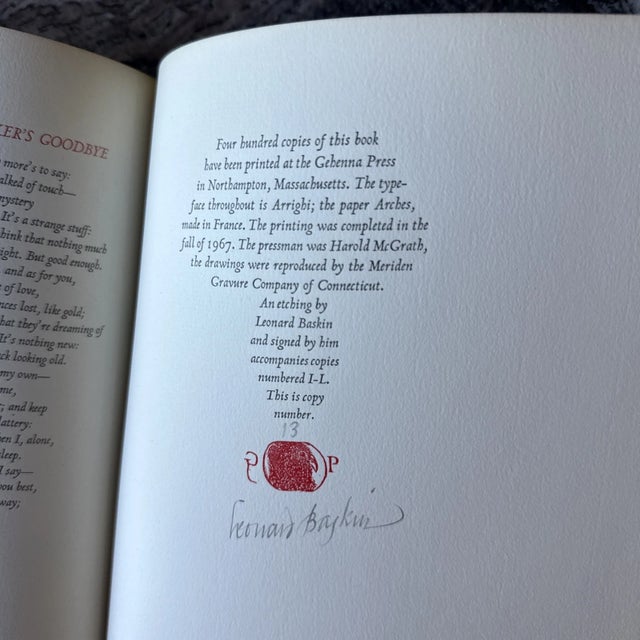 ER'S GOODBYE
more's to say:
alked of touch—
mystery
It's a strange stuff:
hink that nothing much
ight. But good enough.
and as for you,
of love,
nces lost, like gold;
hat they're dreaming of
It's nothing new:
ck looking old.
my own—
me,
; and keep
lattery:
en I, alone,
sleep.
I say—
you best,
way;
Four hundred copies of this book
have been printed at the Gehenna Press
in Northampton, Massachusetts. The type-
face throughout is Arrighi; the paper Arches,
made in France. The printing was completed in the
fall of 1967. The pressman was Harold McGrath,
the drawings were reproduced by the Meriden
Gravure Company of Connecticut.
An etching by
Leonard Baskin
and signed by him
accompanies copies
numbered I-L.
This is copy
number.
13
P
Leonard Baskin